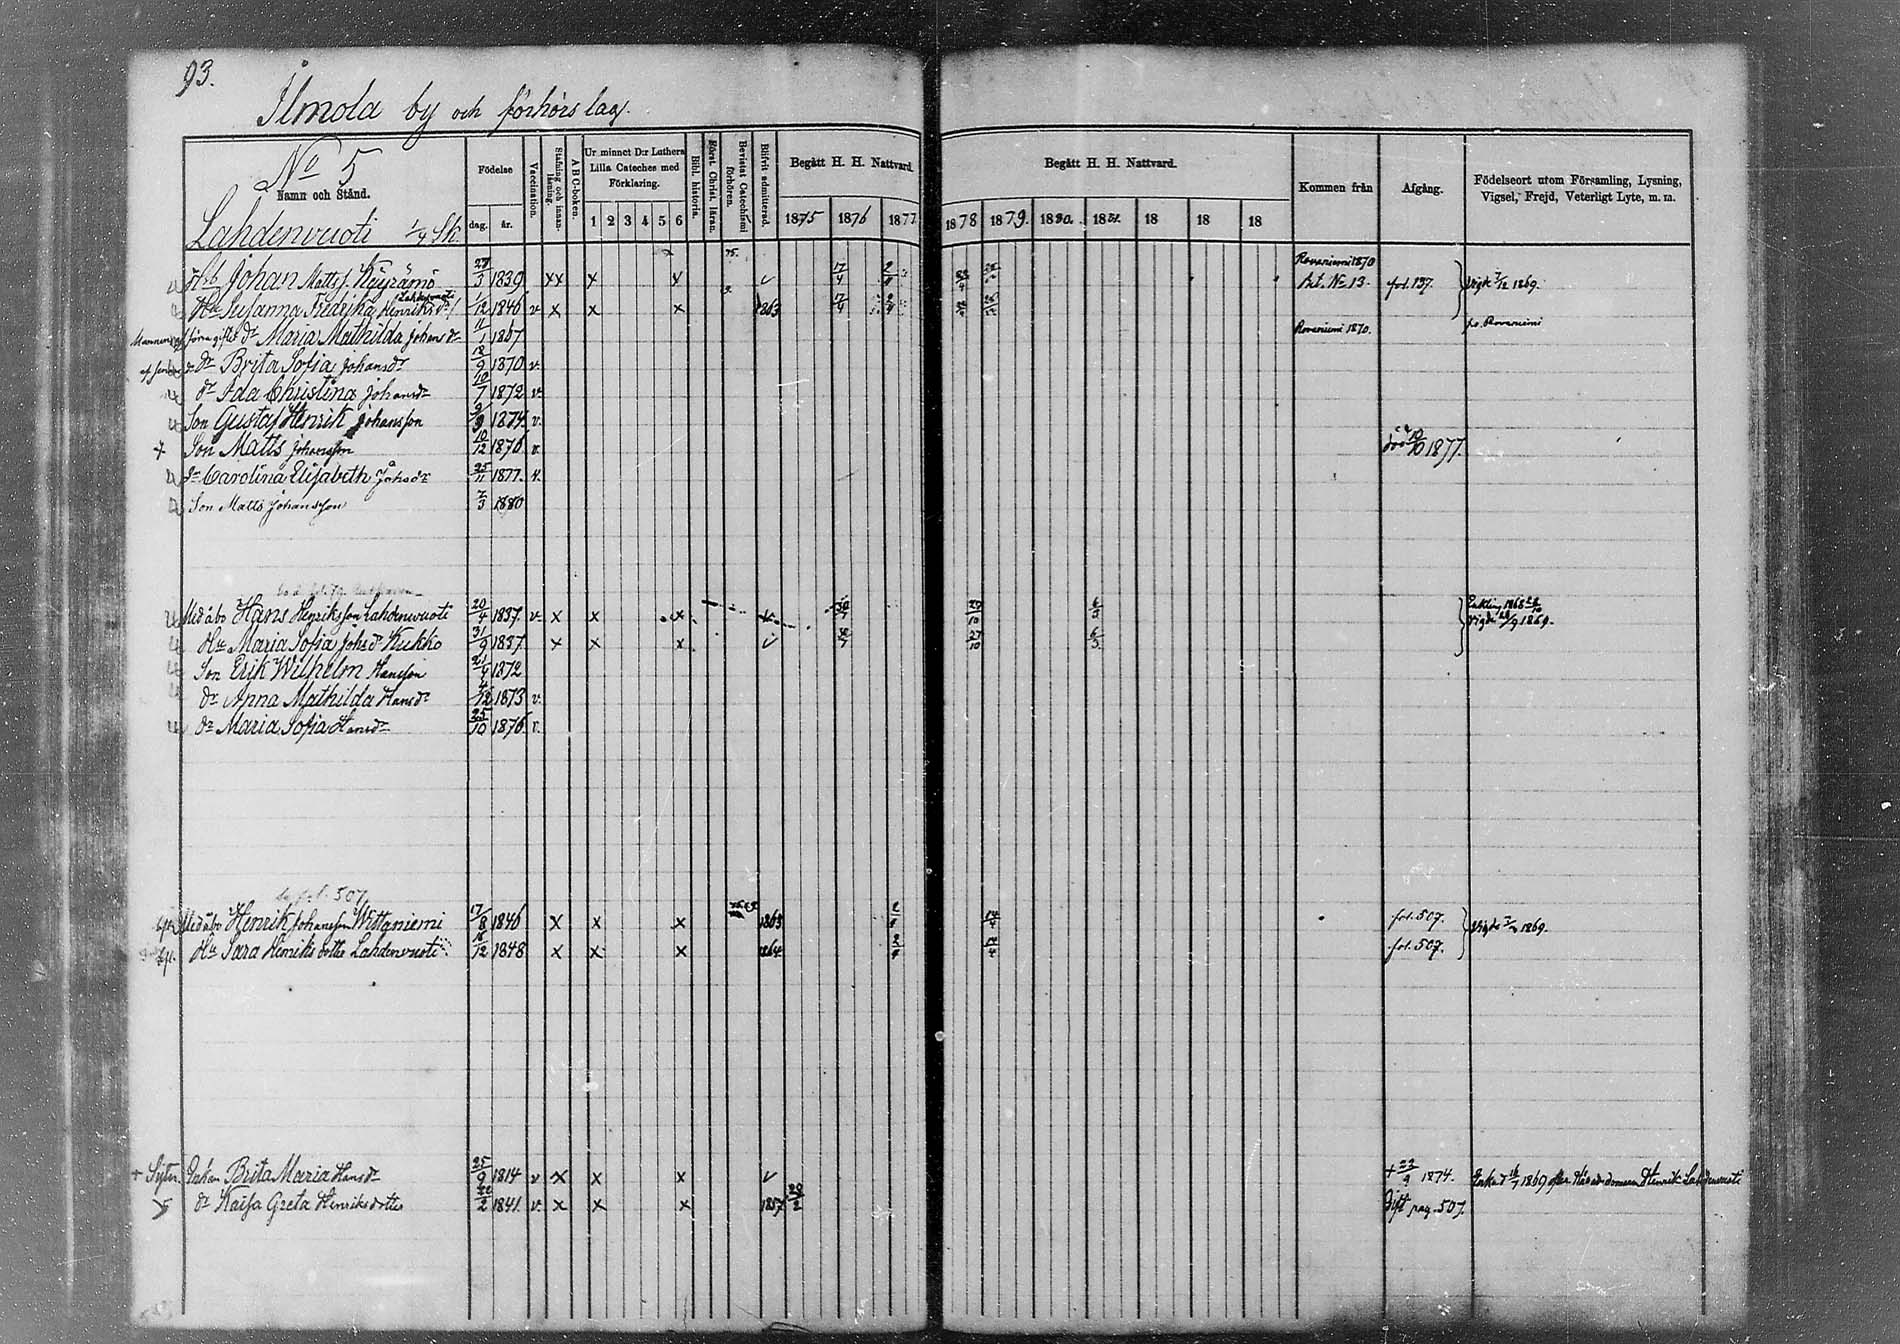 93.
Ilmola by och förhörslag.
No 5
Namn och Stånd.
Lahdenvuoti 1/4 Sk.
Födelse
dag. år.
Vaccination.
Stafning och innan-läsning.
A B C-boken.
Ur minnet D:r Luthers Lilla Cateches med Förklaring.
1 2 3 4 5 6
Bibl. historia.
Först. Christ. läran.
Bevistat Catechismi förhören.
Blifvit admitterad.
Begått H. H. Nattvard.
1875 1876 1877
Begått H. H. Nattvard.
1878 1879. 1880. 1881. 18 18 18
Kommen från
Afgång.
Födelseort utom Församling, Lysning, Vigsel, Frejd, Veterligt Lyte, m. m.
Johan Mattsf. 27/3 1839 xx x x v 17/4 Rovaniemi 1870 No 13. fol. 137. Vigde 7/12 1869.
Hu Susanna Fredrika Henriksdr Lahdenvuoti 1/12 1846 v x x x 1863 17/4
dr Maria Mathilda Johansdr 11/1 1867 Rovaniemi 1870. Rovaniemi
dr Brita Sofia Johansdr 18/9 1870 v.
dr Ida Christina Johansdr 10/7 1872 v.
Son Gustaf Henrik Johansson 9/9 1874. v.
+ Son Matts Johansson 10/12 1876 v. död 10/10 1877.
dr Carolina Elisabeth Johsdr 25/11 1877. v.
Son Matts Johansson 7/3 1880
Midåbo Hans Henriksson Lahdenvuoti 20/4 1837. v. x x x 29/10 6/3 Enkling 1868 Vigde 1869.
Hu Maria Sofia Johsdr Kukko 31/9 1837. x x x v 27/10 6/3
Son Erik Wilhelm Hansson 21/4 1872
dr Anna Mathilda Hansdr 4/12 1873 v.
dr Maria Sofia Hansdr 25/10 1876 v.
fol. 507.
Midåbo Henrik Johansson Wittaniemi 17/8 1846 x x x 1863 fol. 507. Vigde 1869.
Hu Sara Henriksdotter Lahdenvuoti 16/12 1848 x x x 1864 fol. 507.
+ Sytn. Enkan Brita Maria Hansdr 25/9 1814 v x x x v + 23/9 1874. Enka 1869 efter Henrik Lahdenvuoti
dr Kaisa Greta Henriksdotter 22/2 1841. v. x x x 1857 Gift pag. 507.